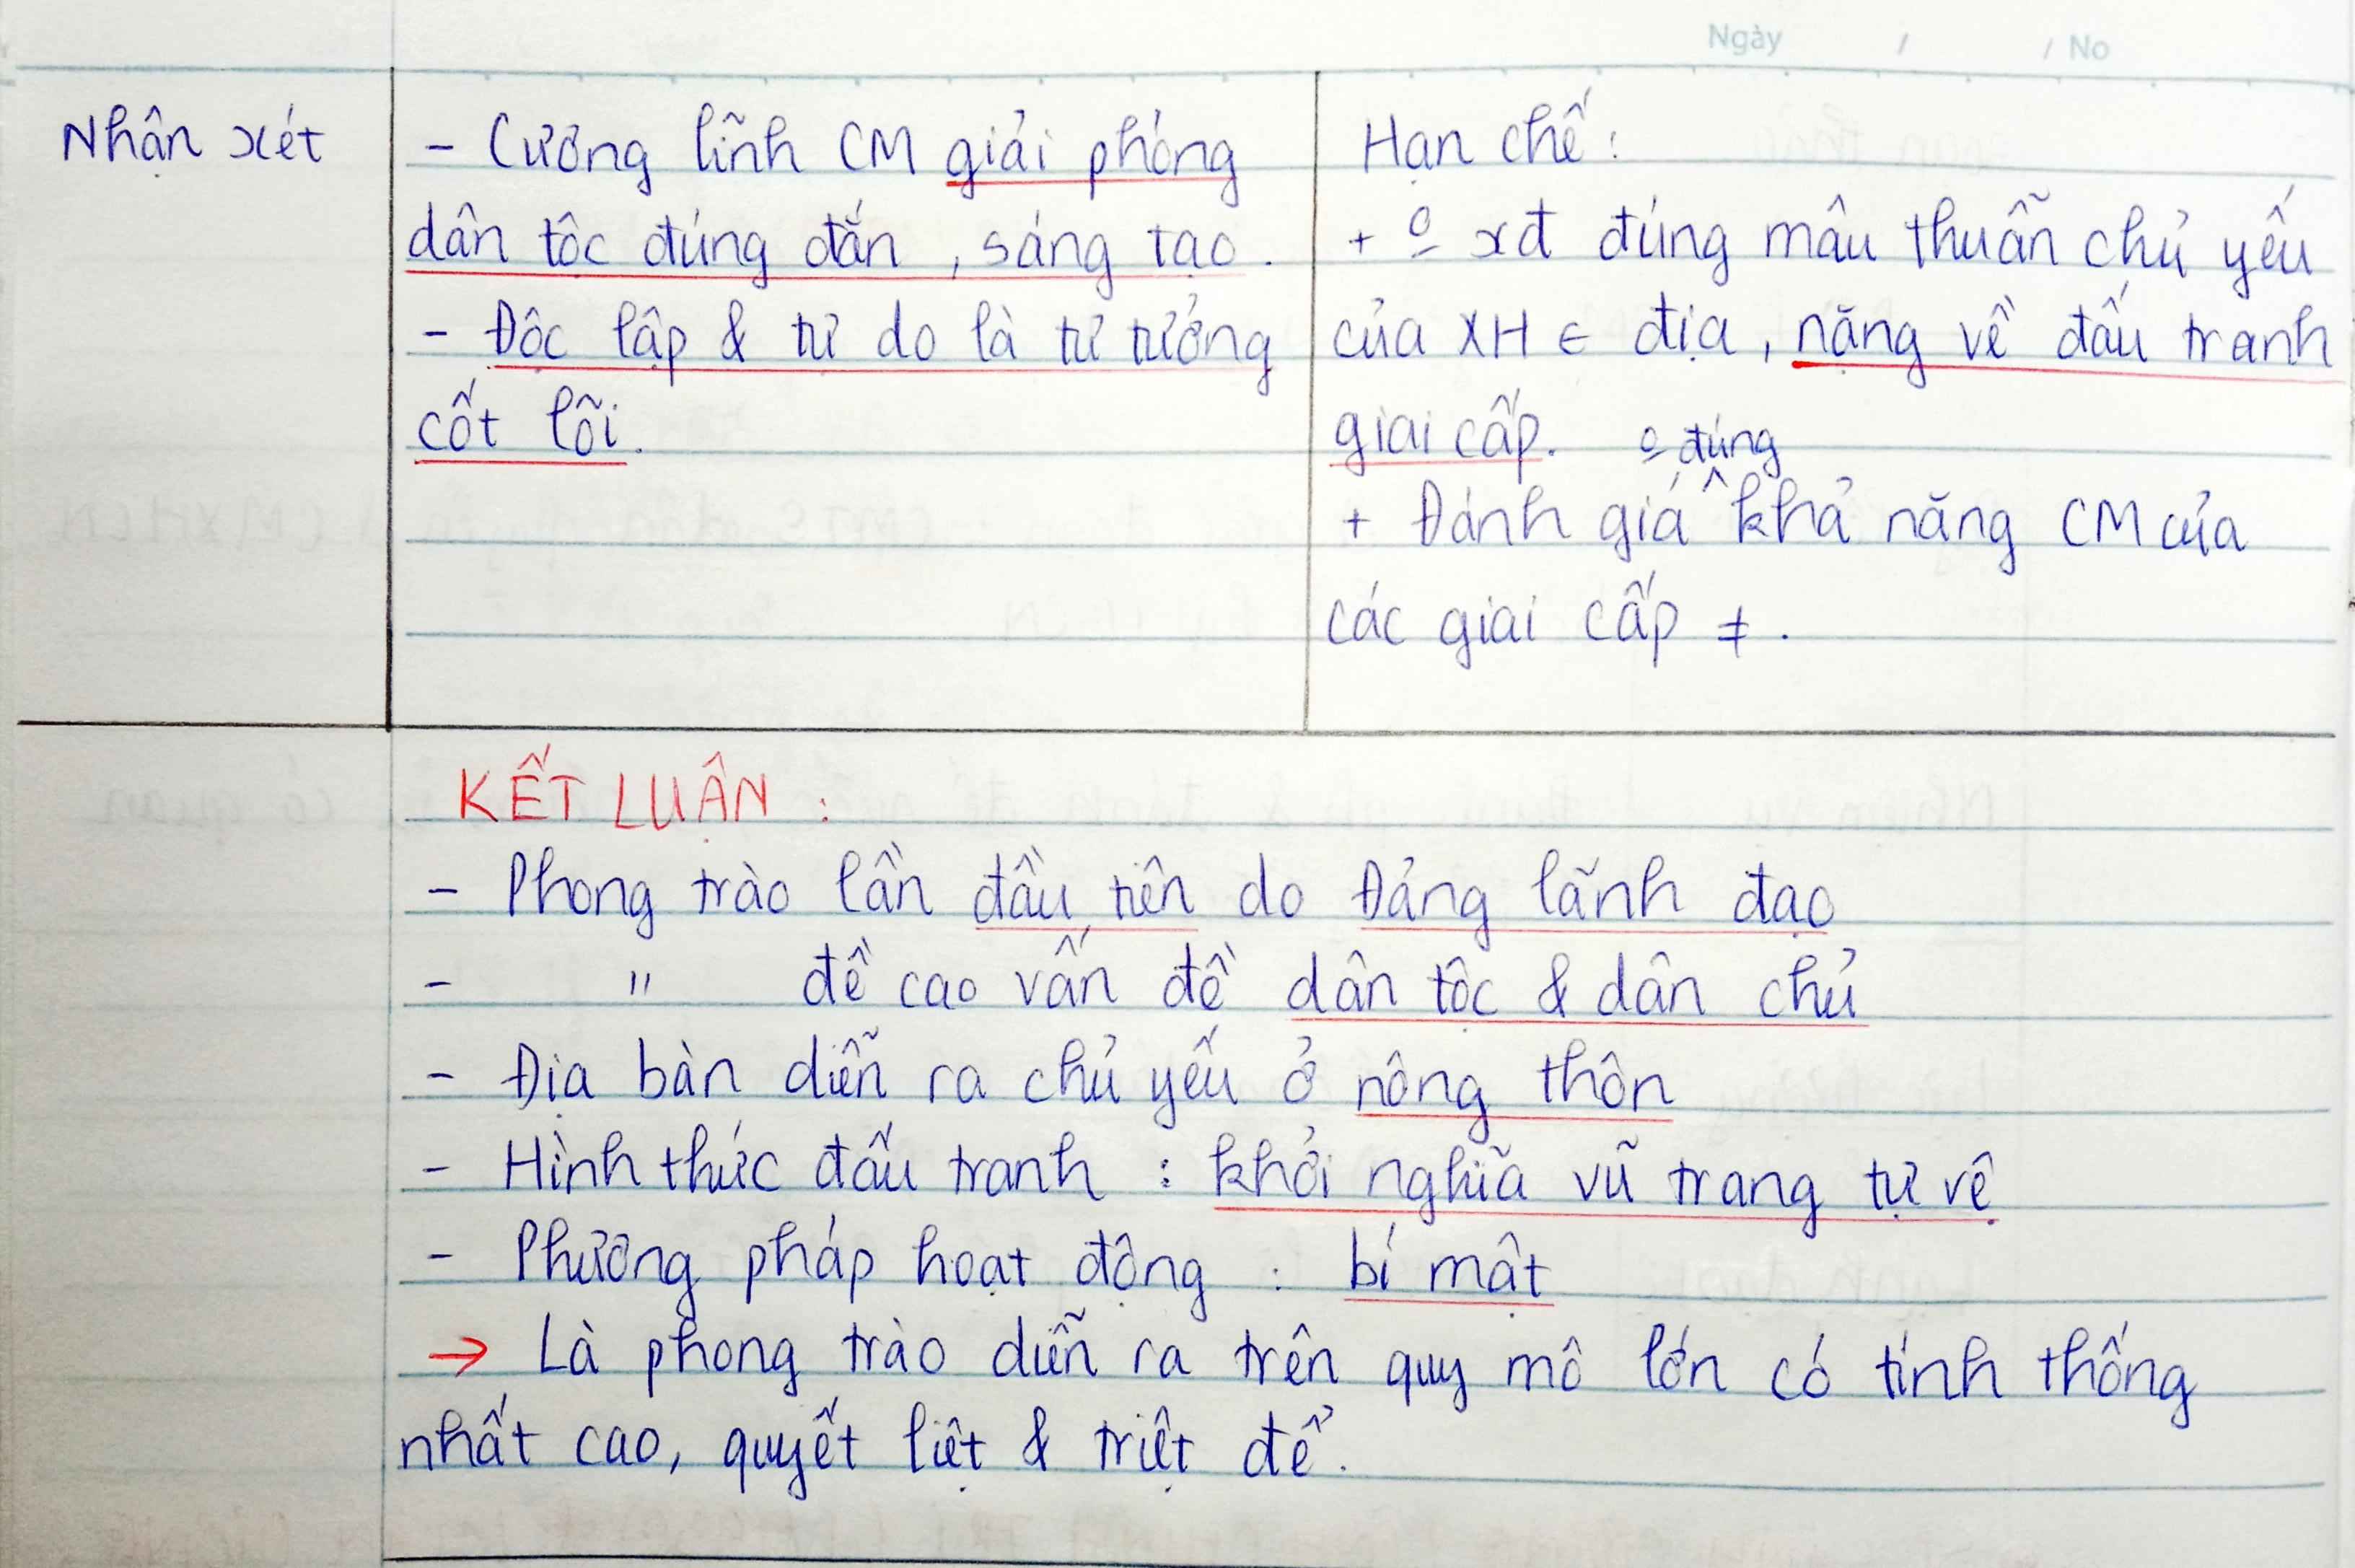 Ngày / / No
Nhận xét
- Cương lĩnh CM giải phóng
dân tộc đúng đắn, sáng tạo.
- Độc lập & tự do là tư tưởng
cốt lõi.
Hạn chế:
+ º xđ đúng mâu thuẫn chủ yếu
của XH ∈ địa, nặng về đấu tranh
giai cấp.
º đúng
+ Đánh giá ^ khả năng CM của
các giai cấp ≠.
KẾT LUẬN :
- Phong trào lần đầu tiên do Đảng lãnh đạo
- " đề cao vấn đề dân tộc & dân chủ
- Địa bàn diễn ra chủ yếu ở nông thôn
- Hình thức đấu tranh : khởi nghĩa vũ trang tự vệ
- Phương pháp hoạt động : bí mật
→ Là phong trào diễn ra trên quy mô lớn có tính thống
nhất cao, quyết liệt & triệt để.